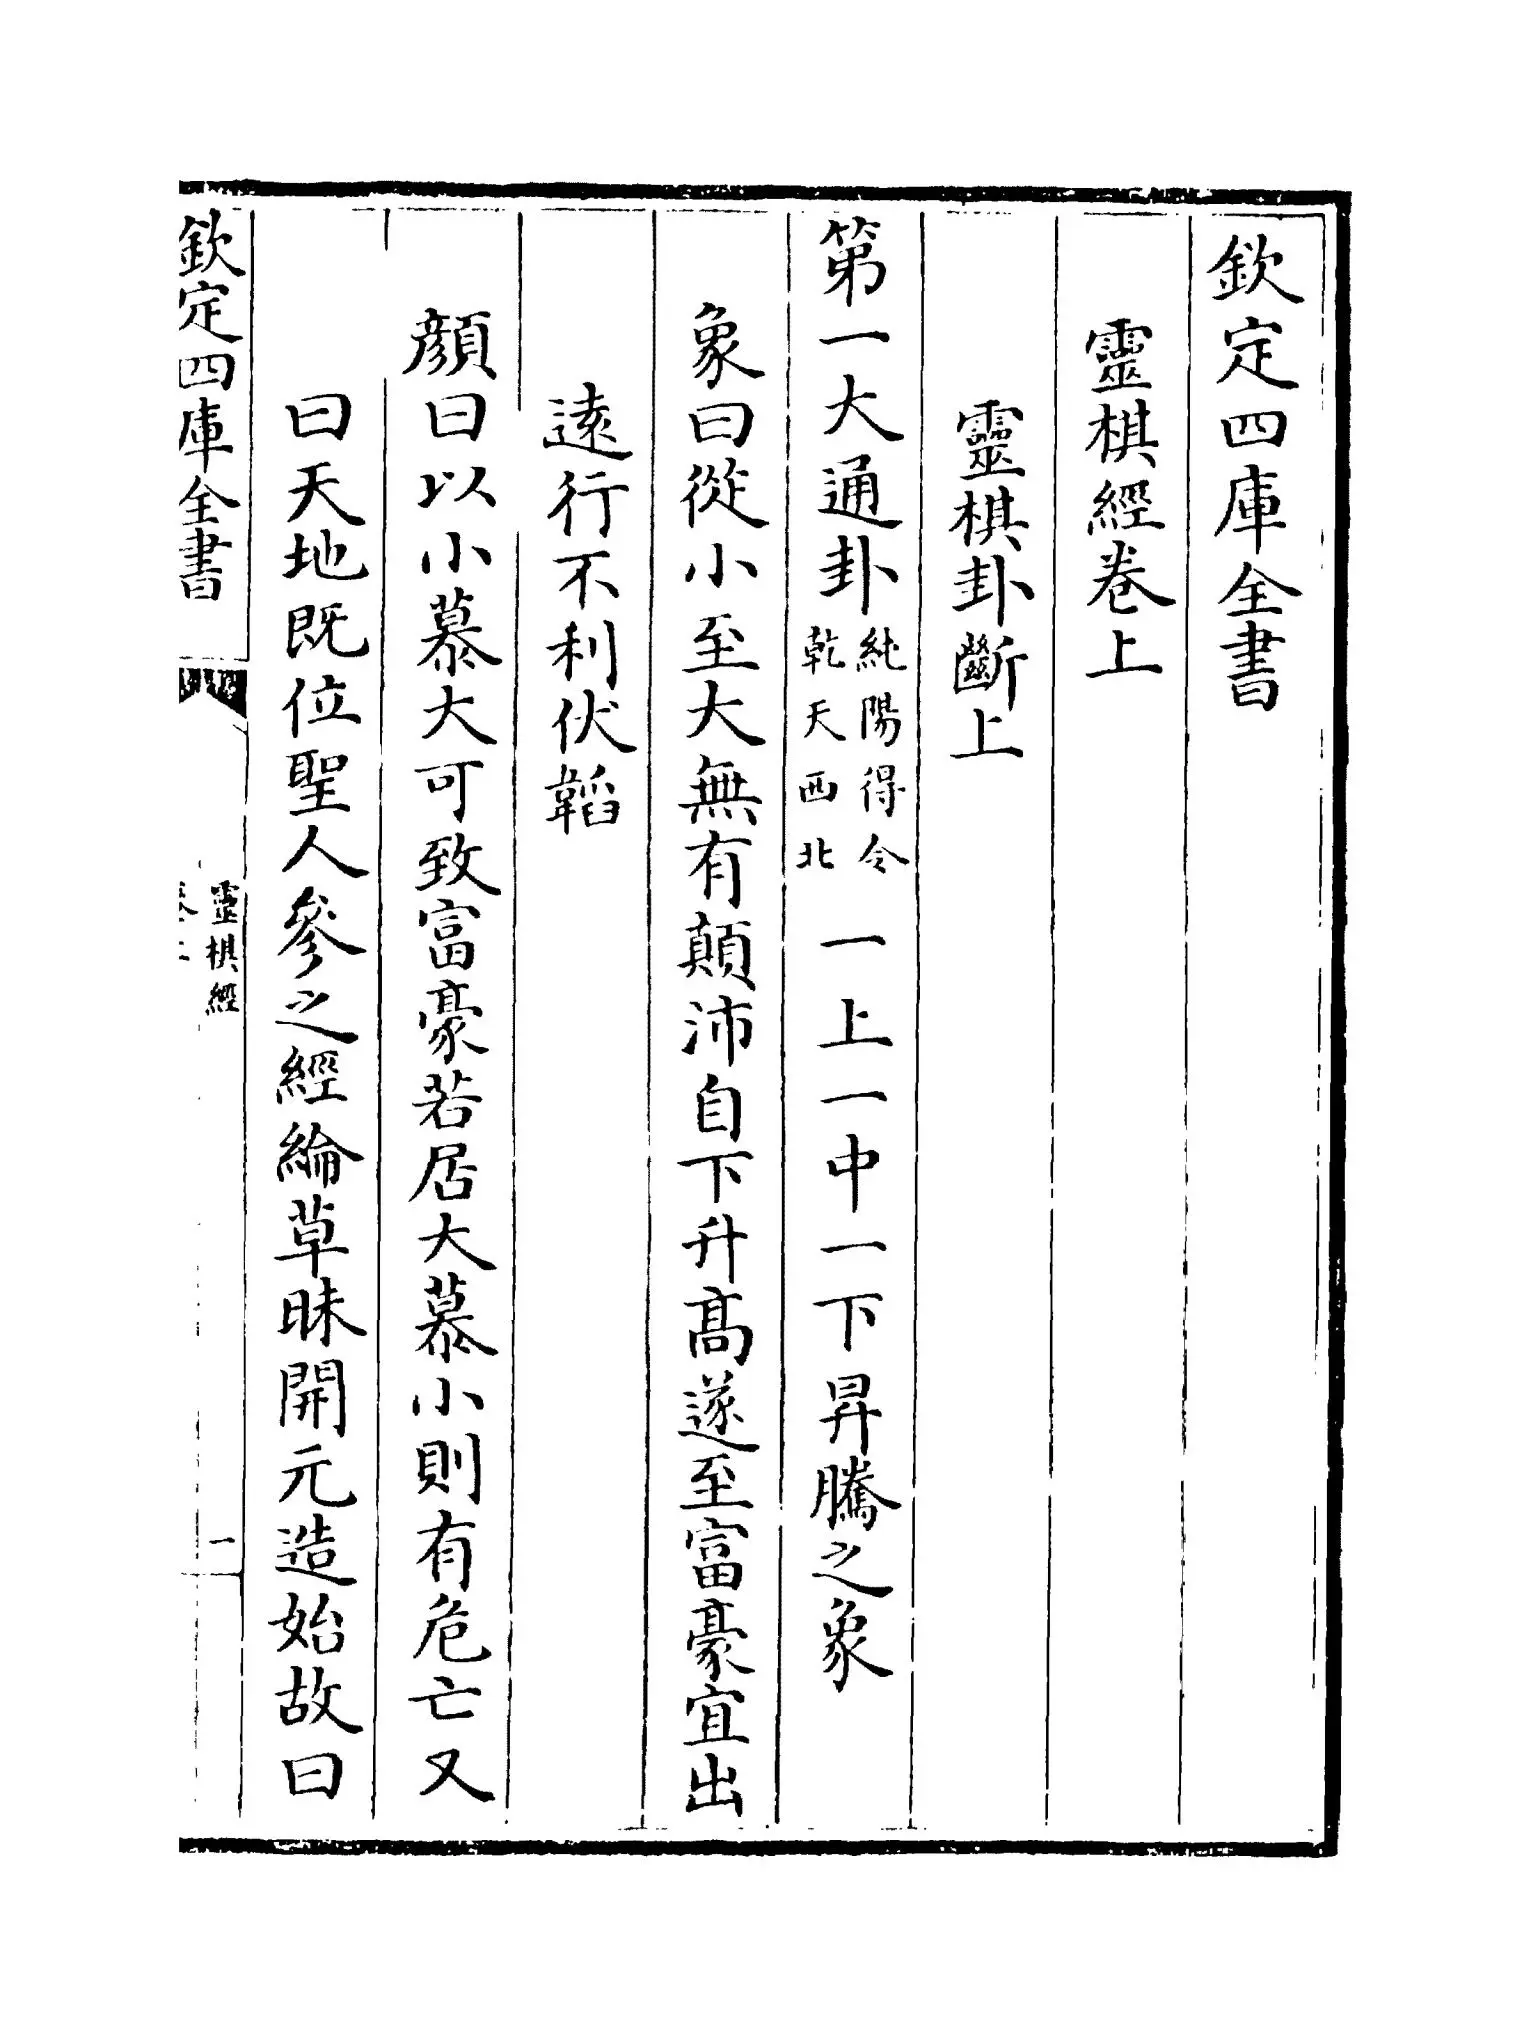 欽定四庫全書
靈棋經卷上
靈棋卦斷上
第一大通卦純陽得令乾天西北一上一中一下昇騰之象
象曰從小至大無有顛沛自下升髙遂至富豪宜出
逺行不利伏韜
顔曰以小慕大可致富豪若居大慕小則有危亡又
曰天地既位聖人參之經綸草昧開元造始故曰
欽定四庫全書
靈棋經
卷上
一